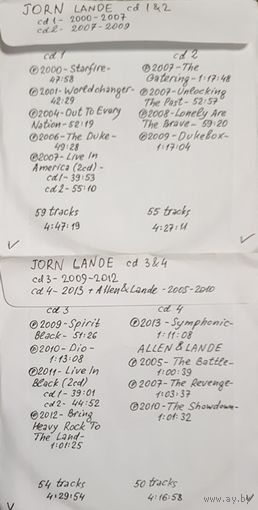 JORN LANDE cd 1&2
cd 1 - 2000-2007
cd 2 - 2007-2009
cd 1
℗2000-Starfire-
47:58
℗2001-Worldchanger-
42:29
℗2004-Out To Every
Nation-52:19
℗2006-The Duke-
49:28
℗2007-Live In
America (2cd)-
cd1-39:53
cd2-55:10
59 tracks
4:47:19
cd 2
℗2007-The
Gatering-1:17:48
℗2007-Unlocking
The Past-52:57
℗2008-Lonely Are
The Brave-59:20
℗2009-Dukebox-
1:17:04
55 tracks
4:27:11
JORN LANDE cd 3&4
cd 3-2009-2012
cd 4-2013 + Allen & Lande-2005-2010
cd 3
℗2009-Spirit
Black-51:26
℗2010-Dio-
1:13:08
℗2011-Live In
Black (2cd)
cd1-39:01
cd2-44:52
℗2012-Bring
Heavy Rock To
The Land-
1:01:25
54 tracks
4:29:54
cd 4
℗2013-Symphonic-
1:11:08
ALLEN & LANDE
℗2005-The Battle-
1:00:39
℗2007-The Revenge-
1:03:37
℗2010-The Showdown-
1:01:32
50 tracks
4:16:58
www.ay.by